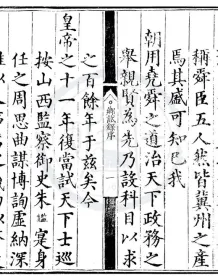 稱舜臣五人然皆冀州之產
焉其盛可知已我
朝用堯舜之道治天下政務之
舉親賢為先乃設科目以求
鄉試錄序
之百餘年于茲矣今
皇帝之十一年復當試天下士巡
按山西監察御史朱寔身
任之周思曲謀博詢虛納深